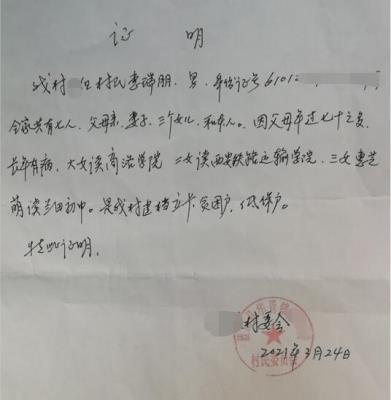 证 明
我村 组村民李瑞朋，男，身份证号6101
全家共有七人，父母亲，妻子，三个女儿，和本人。因父母年过七十之多，
长年有病，大女读商洛学院 二女读西安铁路运输学院，三女李艺
萌读兰田初中。是我村建档立卡贫困户，低保户。
特此证明。
村委会
2021年3月24日
村民委员会